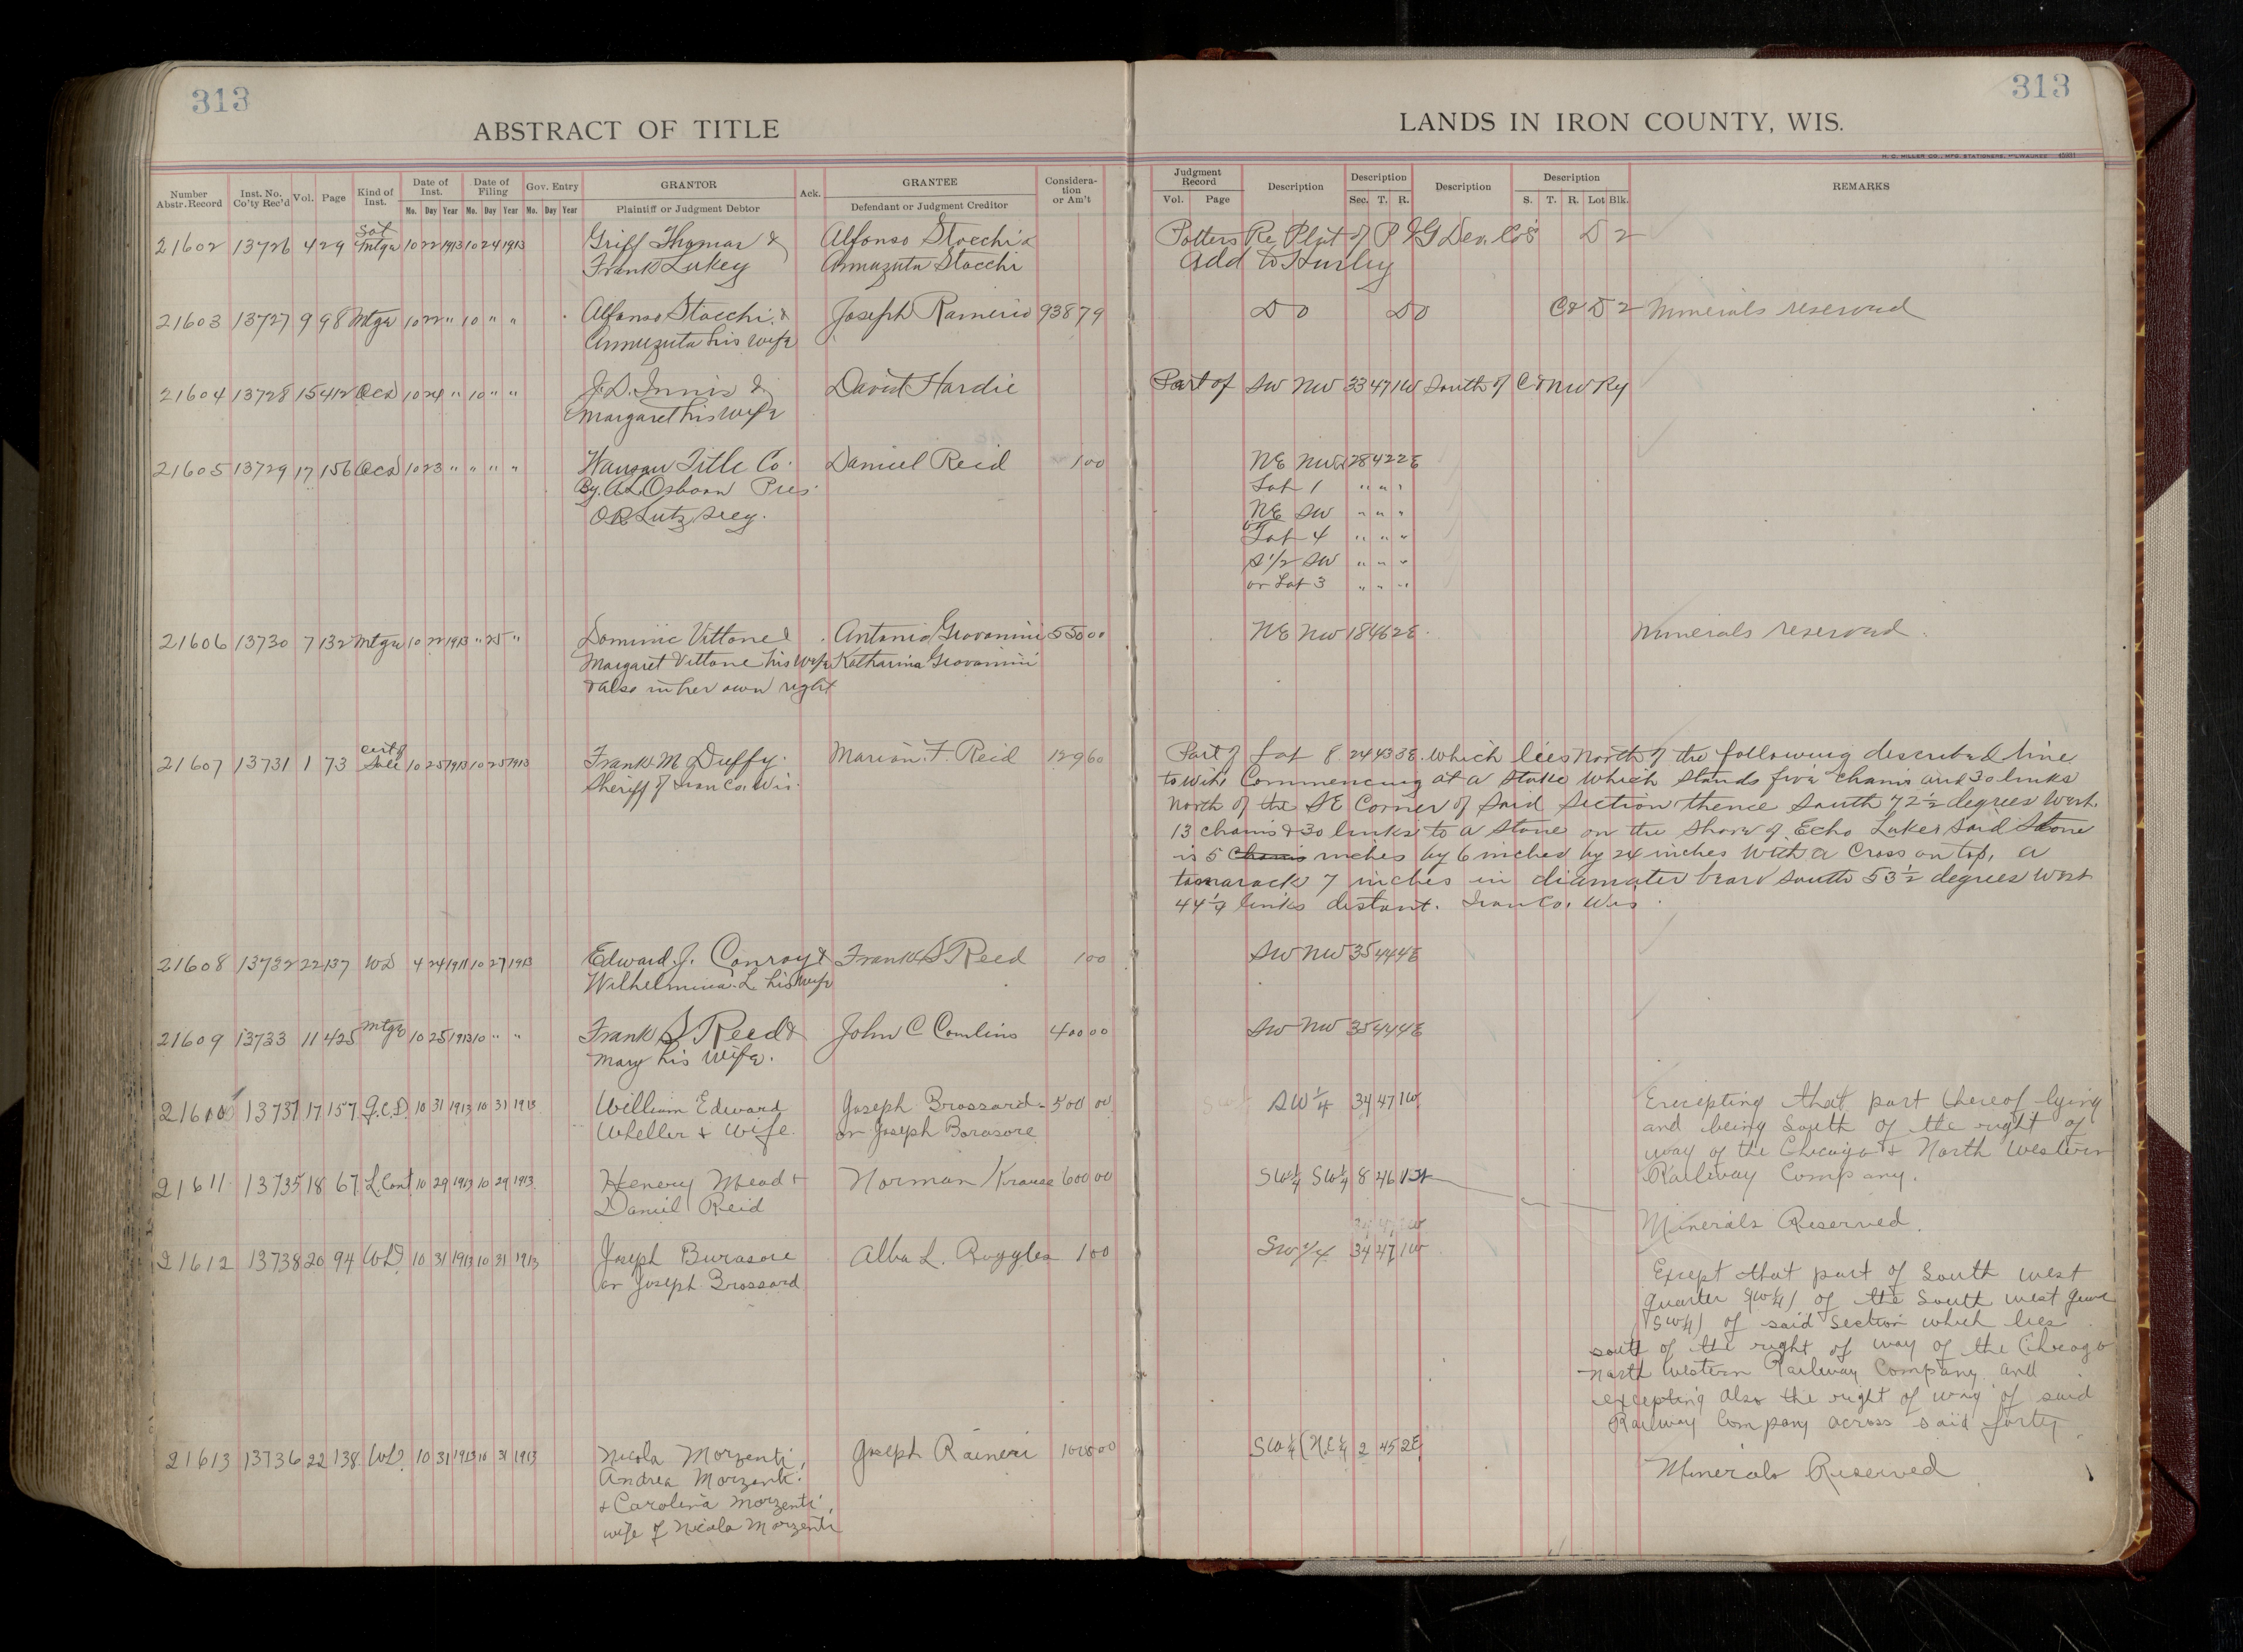 313
313
ABSTRACT OF TITLE
LANDS IN IRON COUNTY, WIS.
H. C. MILLER CO., MFG. STATIONERS, MILWAUKEE
Number Abstr. Record Inst. No. Co'ty Rec'd Vol. Page Kind of Inst. Date of Inst. Mo. Day Year Date of Filing Mo. Day Year Gov. Entry Mo. Day Year GRANTOR Plaintiff or Judgment Debtor Ack. GRANTEE Defendant or Judgment Creditor Considera-tion or Am't
Judgment Record Vol. Page Description Description Sec. T. R. Description Description S. T. R. Lot Blk. REMARKS
Sat
21602 13726 4 29 Mtge 10 22 1913 10 24 1913 Griff Thomas & Alfonso Stocchi & Potters Re Plat of P & G Dev. Co's D 2
Frank Lukey Armuzuta Stocchi Add to Hurley
21603 13727 9 98 Mtge 10 22 " 10 " " Alfonso Stocchi & Joseph Ramerio 938 79 DO DO C & D 2 Minerals reserved
Armuzuta his wife
21604 13728 15 412 QCD 10 24 " 10 " " J. D. Innis & David Hardie Part of SW NW 33 47 1W South of C & NW Ry
Margaret his wife
21605 13729 17 156 QCD 10 23 " " " " Wausau Title Co. Daniel Reid 1 00 NE NW 28 42 2E
By. A. L. Osborn Pres. Lot 1 " " "
O R Lutz Secy. NE SW " " "
or Lot 4 " " "
S 1/2 SW " " "
or Lot 3 " " "
21606 13730 7 132 Mtge 10 22 1913 " 25 " Dominic Vittone & Antonio Giovanini 550 00 NE NW 18 46 2E Minerals reserved.
Margaret Vittone his wife Katharina Giovanini
& also in her own right
cert of
21607 13731 1 73 Sale 10 25 1913 10 25 1913 Frank M Duffy. Marion. F. Reid 129 60 Part of Lot 8 24 43 3E. which lies North of the following described line
Sheriff of Iron Co. Wis. to wit: Commencing at a stake which stands five chains and 30 links
North of the SE Corner of said Section thence South 72 1/2 degrees West.
13 chains & 30 links to a stone on the shore of Echo Lake said Stone
is 5 chains inches by 6 inches by 24 inches with a Cross on top, a
tamarack 7 inches in diameter bears South 53 1/2 degrees West
44 1/4 links distant. Iron Co. Wis.
21608 13732 22 137 WD 4 24 1911 10 27 1913 Edward. J. Conroy & Frank S Reed 1 00 SW NW 35 44 4E
Wilhelmina. L his wife
21609 13733 11 425 Mtge 10 25 1913 10 " " Frank S Reed & John C Comlins 400 00 SW NW 35 44 4E
Mary his wife.
13737 17 157 Q.C.D 10 31 1913 10 31 1913 William Edward Joseph Brossard 500 00 SW 1/4 34 47 1W Excepting that part thereof lying
Wheller & wife. or Joseph Borasore and being South of the right of
way of the Chicago & North Western
Railway Company.
21611 13735 18 67 L. Cont 10 29 1913 10 29 1913 Henery Mead & Norman Krause 600 00 SW 1/4 SW 1/4 8 46
Daniel Reid Minerals Reserved.
21612 13738 20 94 WD 10 31 1913 10 31 1913 Joseph Burasore Alba L. Ruggles 1 00 SW 1/4 34 47 1W
or Joseph Brossard Except that part of South West
quarter SW 1/4) of the South west
(SW 1/4) of said Section which lies
south of the right of way of the Chicago
North Western Railway Company and
excepting also the right of way of said
Railway Company across said forty
21613 13736 22 138 WD. 10 31 1913 10 31 1913 Nicola Morzenti, Joseph Raineri SW 1/4 (N.E 1/4 2 45 2E Minerals Reserved
Andrea Morzenti.
& Carolina Morzenti,
wife of Nicola Morzenti